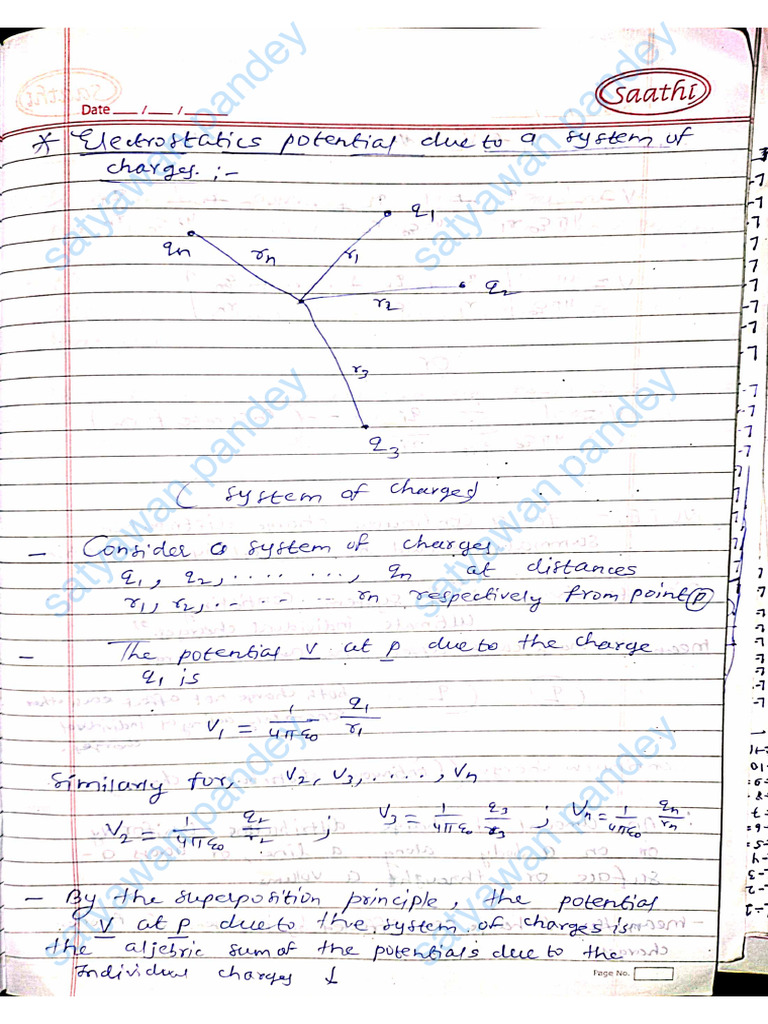 Saathi
Date ___ / ___ / ___
* Electrostatics potential due to a system of
charges :-
q1
qn
rn
r1
q2
r2
r3
q3
( system of charges)
- Consider a system of charges
q1, q2, ......, qn at distances
r1, r2, ..... rn respectively from point P
- The potential V at P due to the charge
q1 is
V1 = 1/4πε0 q1/r1
Similarly for, V2, V3, ....., Vn
V2 = 1/4πε0 q2/r2 ; V3 = 1/4πε0 q3/r3 ; Vn = 1/4πε0 qn/rn :
- By the superposition principle, the potential
V at P due to the system of charges is
the aljebric sum of the potentials due to the
Individual charges
Page No.
satyawan pandey
satyawan pandey
satyawan pandey
satyawan pandey
satyawan pandey
satyawan pandey